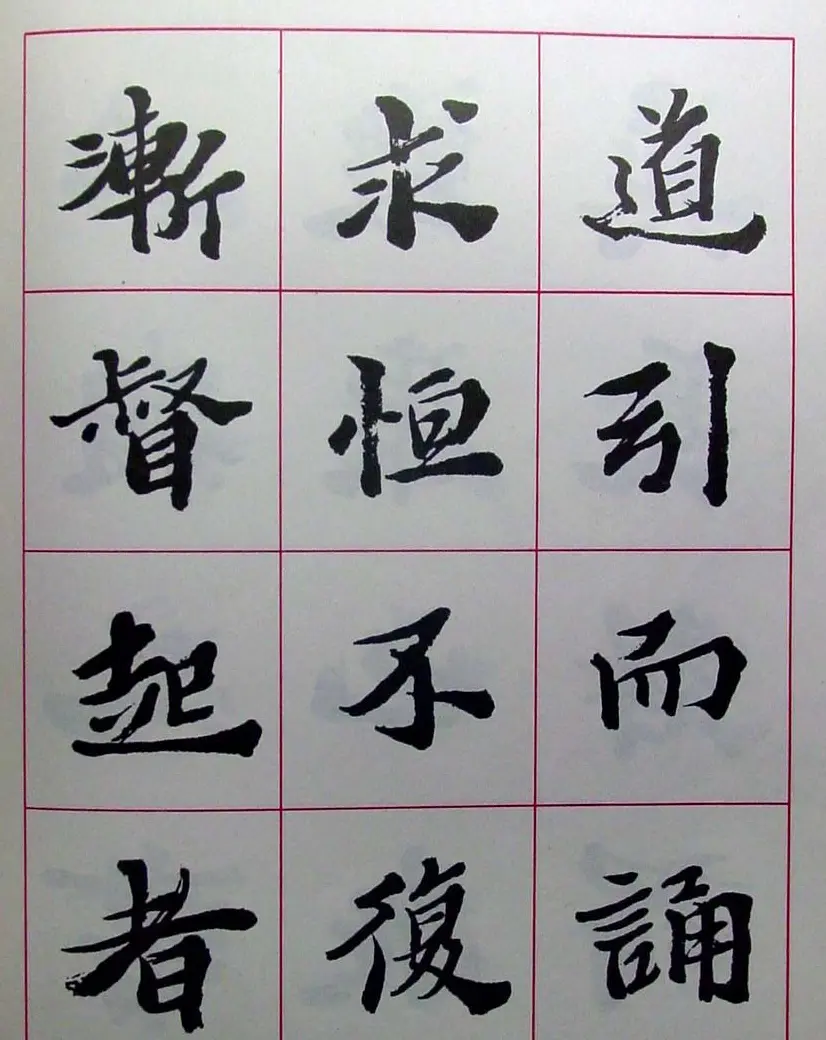 道引而誦
求恒不復
漸督起者